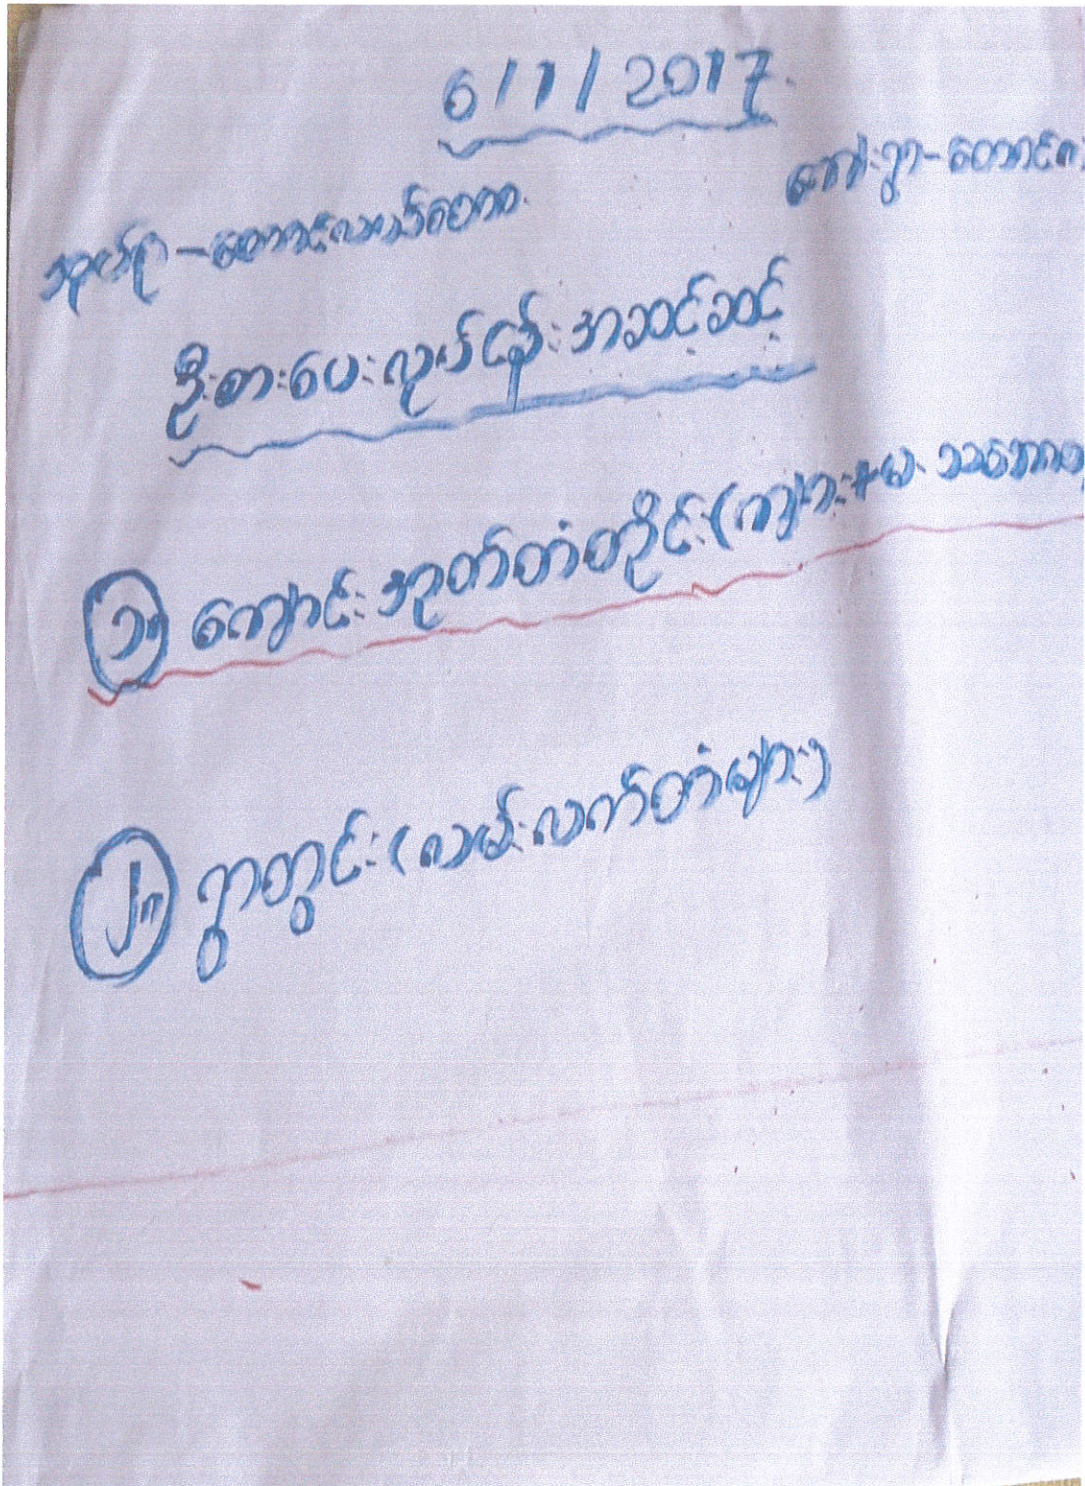 6/1/2017
အုပ်စု - တောင်လယ်တော ကျေးရွာ - တောင်
ဦးစားပေးလုပ်ငန်းအဆင့်ဆင့်
၁။ ကျောင်းအုတ်တံတိုင်း (ကျား+မ
၂။ ရွာတွင်း (လမ်းလက်တံများ)